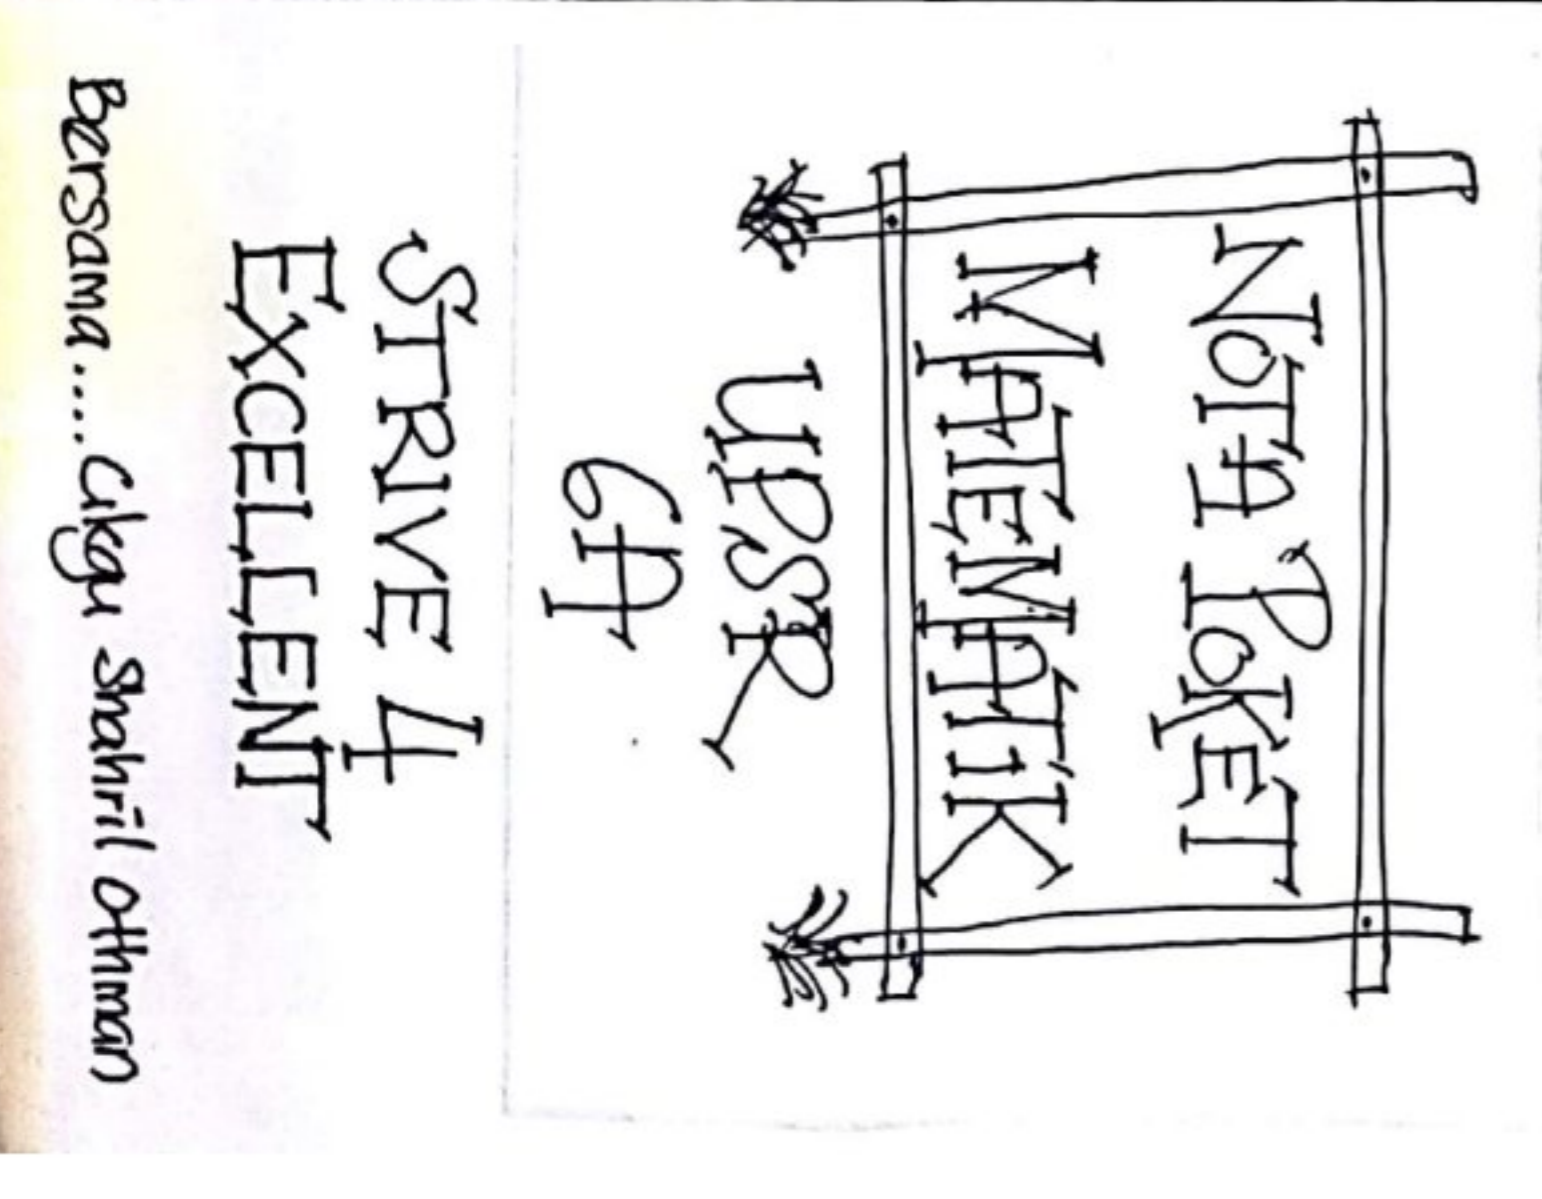 NOTA POKET
MATEMATIK
UPSR
6A
STRIVE 4
EXCELLENT
Bersama.....Cikgu Shahril Othman